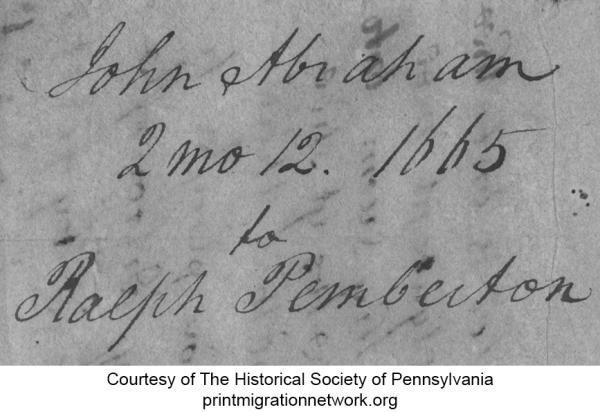 John Abraham
2 mo 12. 1665
to
Ralph Pemberton
Courtesy of The Historical Society of Pennsylvania
printmigrationnetwork.org